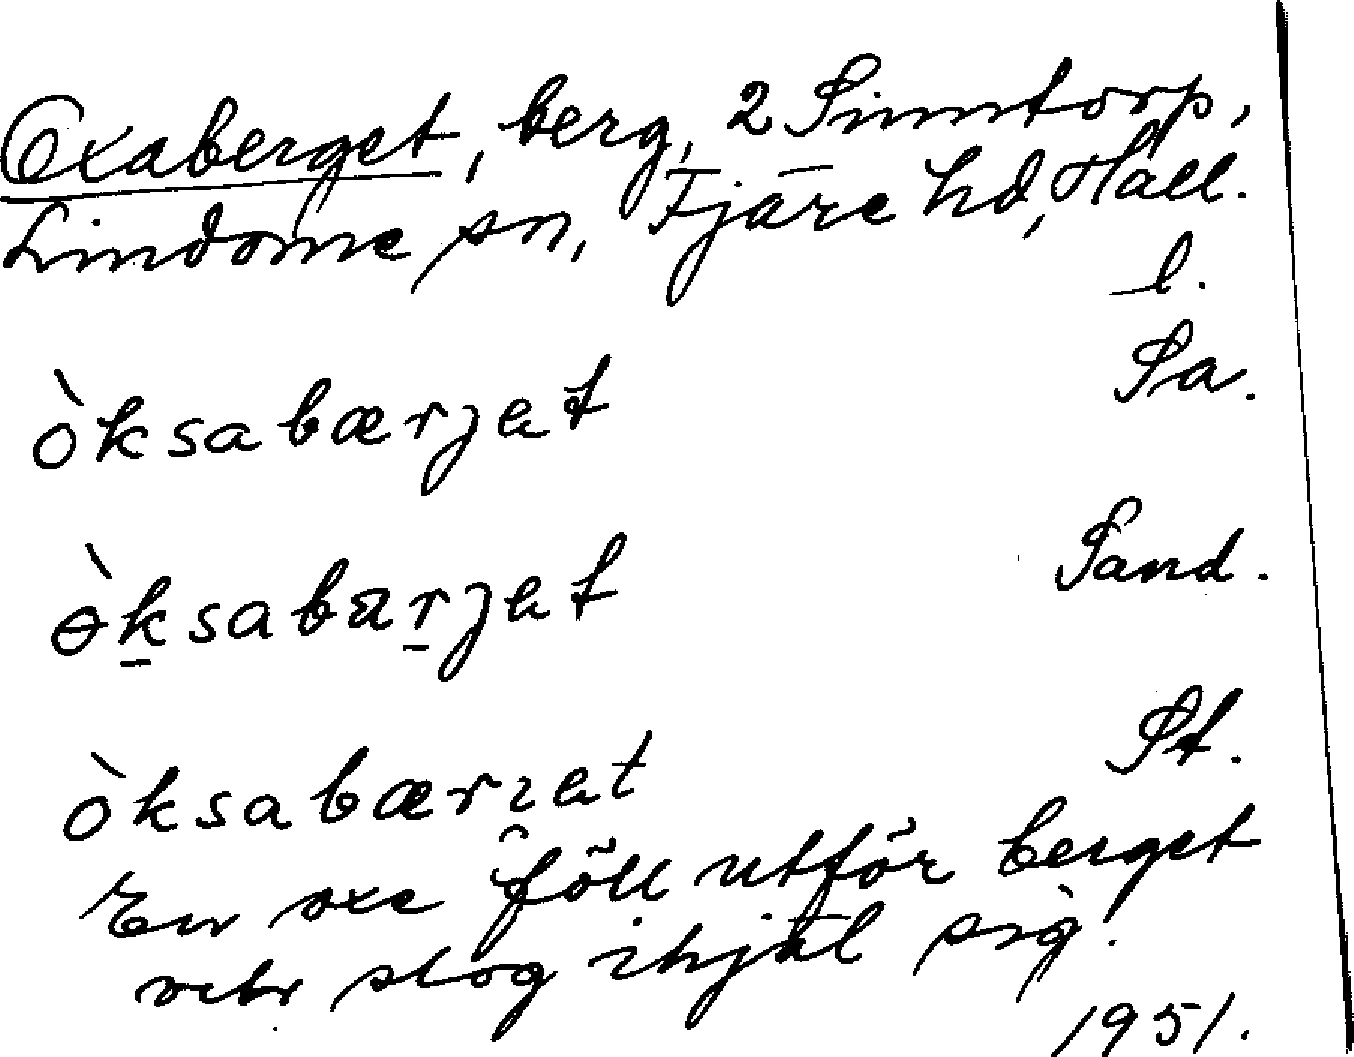 Oxaberget, berg, 2 Sinntorp,
Lindome sn, Fjäre hd, Hall.
l.
òksabærjet Sa.
òksabarjet Sand.
òksabæriet St.
En oxe föll utför berget
och slog ihjäl sig.
1951.